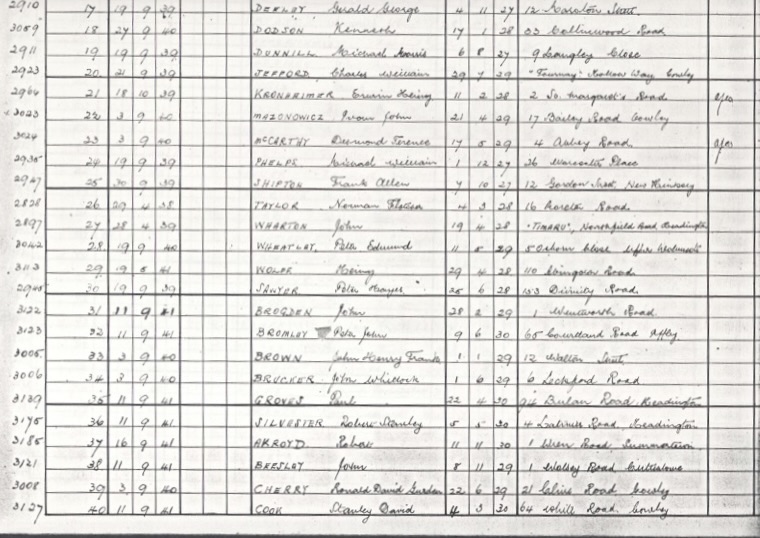 2910 17 19 9 39 DEELEY Gerald George 4 11 27 12
3059 18 27 9 40 DODSON Kenneth 17 1 28 33 Collinwood Road
2911 19 19 9 39 DUNNILL Michael 6 8 27 9 Langley Close
2923 20 21 9 39 JEFFORD Charles William 29 7 29 Hollow Way Cowley
2964 21 18 10 39 KRONHEIMER Erwin 11 2 28 2 St. Margaret's Road
3023 22 3 9 40 MAZONOWICZ Ivan John 21 4 29 17 Bailey Road Cowley
3024 23 3 9 40 McCARTHY Desmond Terence 17 5 29 4 Road
2935 24 19 9 39 PHELPS Michael William 1 12 27 36 Place
2947 25 30 9 39 SHIPTON Frank Allen 7 10 27 12 Gordon Street New Hinksey
2828 26 29 4 38 TAYLOR Norman 4 3 28 16 Road
2897 27 28 4 39 WHARTON John 19 4 28 "TIMARU", Northfield Road Headington
3042 28 19 9 40 WHEATLEY, Peter Edmund 11 5 29 5 Osborn Close Upper Wolvercote
3113 29 19 5 41 WOLFF 29 4 28 110 Abingdon Road
2945 30 19 9 39 SAWYER Peter 25 6 28 153 Divinity Road
3122 31 11 9 41 BROGDEN John 28 2 29 1 Wentworth Road.
3123 32 11 9 41 BROMLEY Peter John 9 6 30 65 Courtland Road Iffley
3005 33 3 9 40 BROWN John Henry Frank 1 1 29 12 Walton Street
3006 34 3 9 40 BRUCKER John Whitlock 1 6 29 6 Lockford Road
3139 35 11 9 41 GROVES Paul 22 4 30 94 Bulan Road Headington
3175 36 11 9 41 SILVESTER Robert Stanley 5 5 30 4 Latimer Road Headington
3185 37 16 9 41 AKROYD. Robert 11 11 30 1 Wren Road Summertown
3121 38 11 9 41 BEESLEY John 8 11 29 1 Wolsey Road Cutteslowe
3008 39 3 9 40 CHERRY Ronald David Gordon 22 6 29 21 Clive Road Cowley
3127 40 11 9 41 COOK Stanley David 4 3 30 64 White Road Cowley